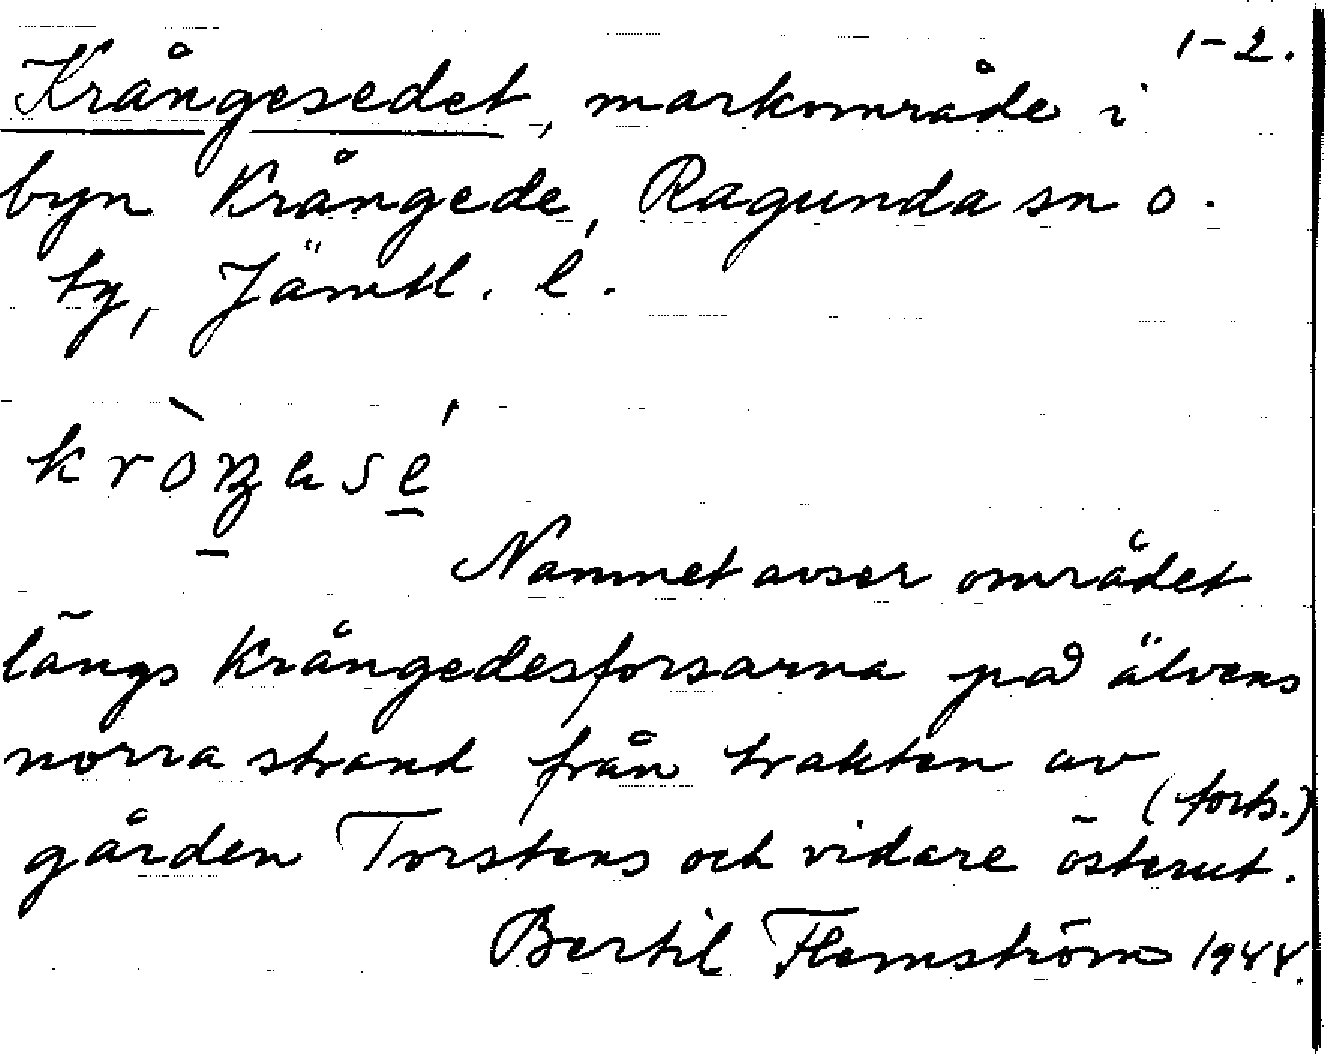 1-2.
Krångesedet, markområde i
byn Krångede, Ragunda sn o.
tg, Jämtl. l.
Namnet avser området
längs Krångedesforsarna på älvens
norra strand från trakten av
(forts.)
gården Torstens och vidare österut.
Bertil Flemström 1944.